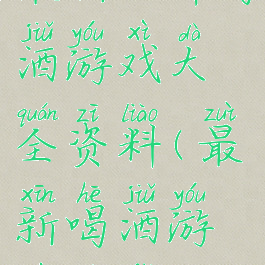 jiǔ yóu xì dà
酒游戏大
quán zī liào zuì
全资料(最
xīn hē jiǔ yóu
新喝酒游